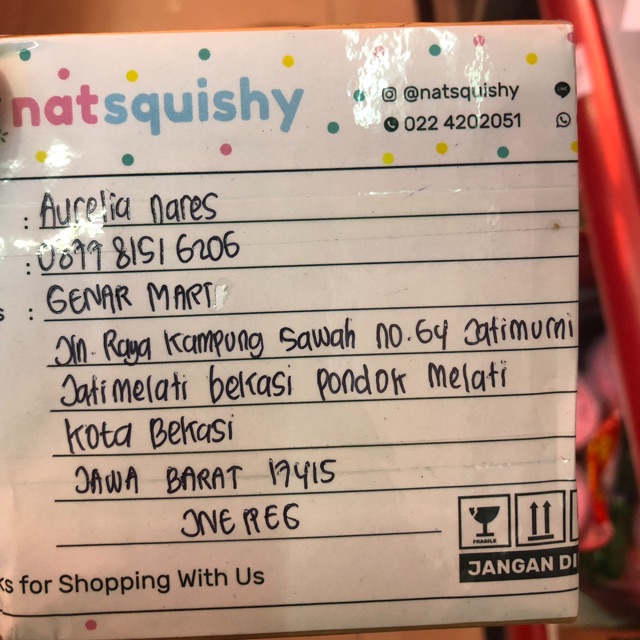 natsquishy
@natsquishy
022 4202051
: Aurelia nares
: 0899 8151 6206
s : GENAR MART
Jln. Raya Kampung Sawah no. 64 Jatimurni
Jatimelati bekasi pondok Melati
Kota Bekasi
JAWA BARAT 17415
JNE REG
FRAGILE
JANGAN DI
ks for Shopping With Us